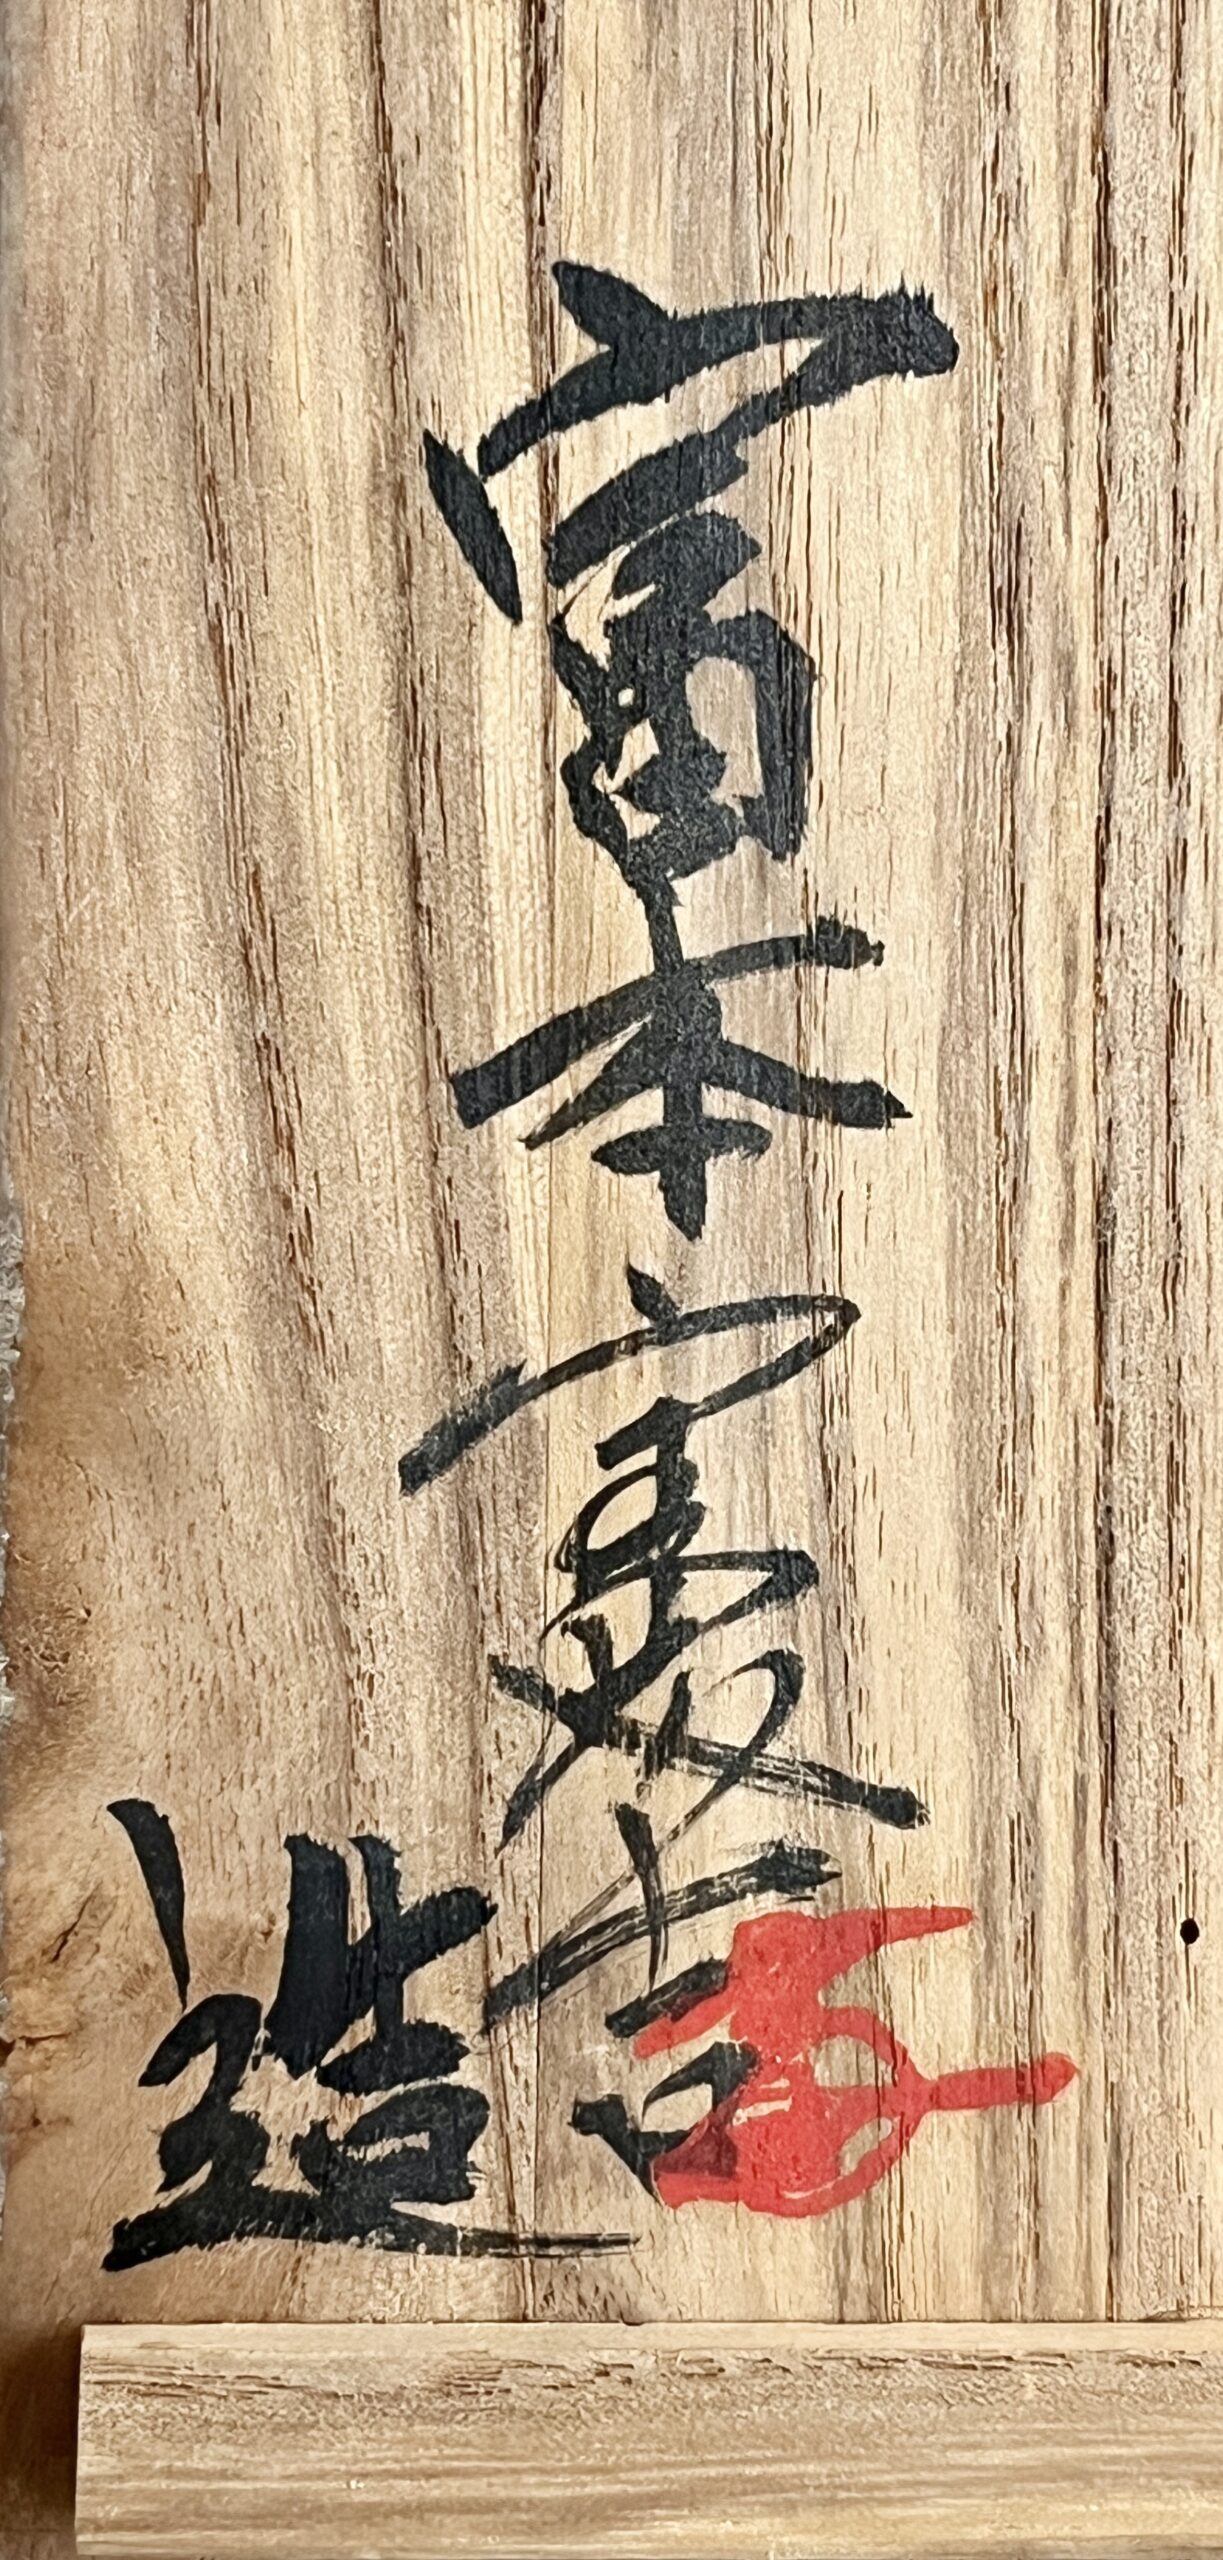 富本憲吉
造